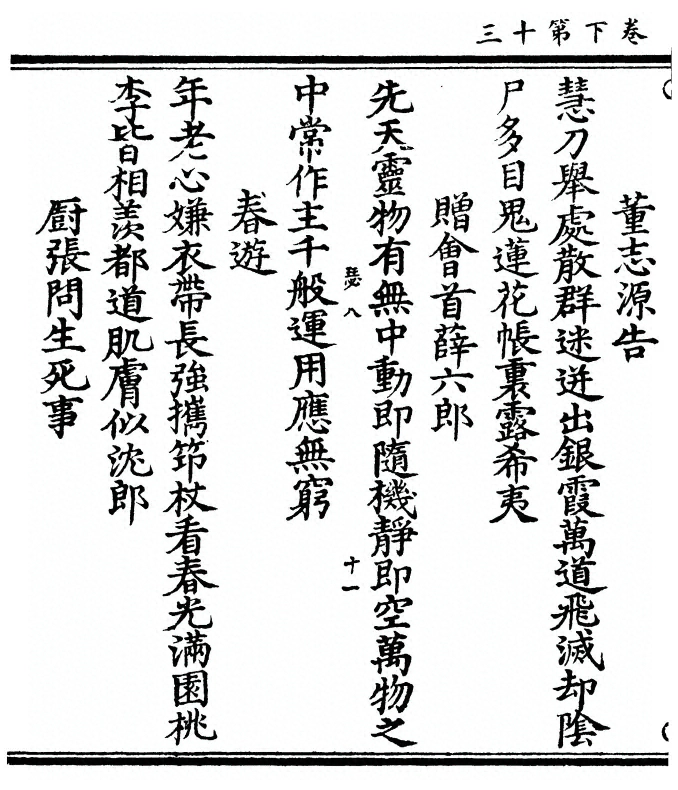 卷下第十三
董志源告
慧刀舉處散群迷迸出銀霞萬道飛滅却陰
尸多目鬼蓮花帳裏露希夷
贈會首薛六郎
先天靈物有無中動即隨機靜即空萬物之
瑟八 十一
中常作主千般運用應無窮
春遊
年老心嫌衣帶長強攜筇杖看春光滿園桃
李皆相羨都道肌膚似沈郎
厨張問生死事